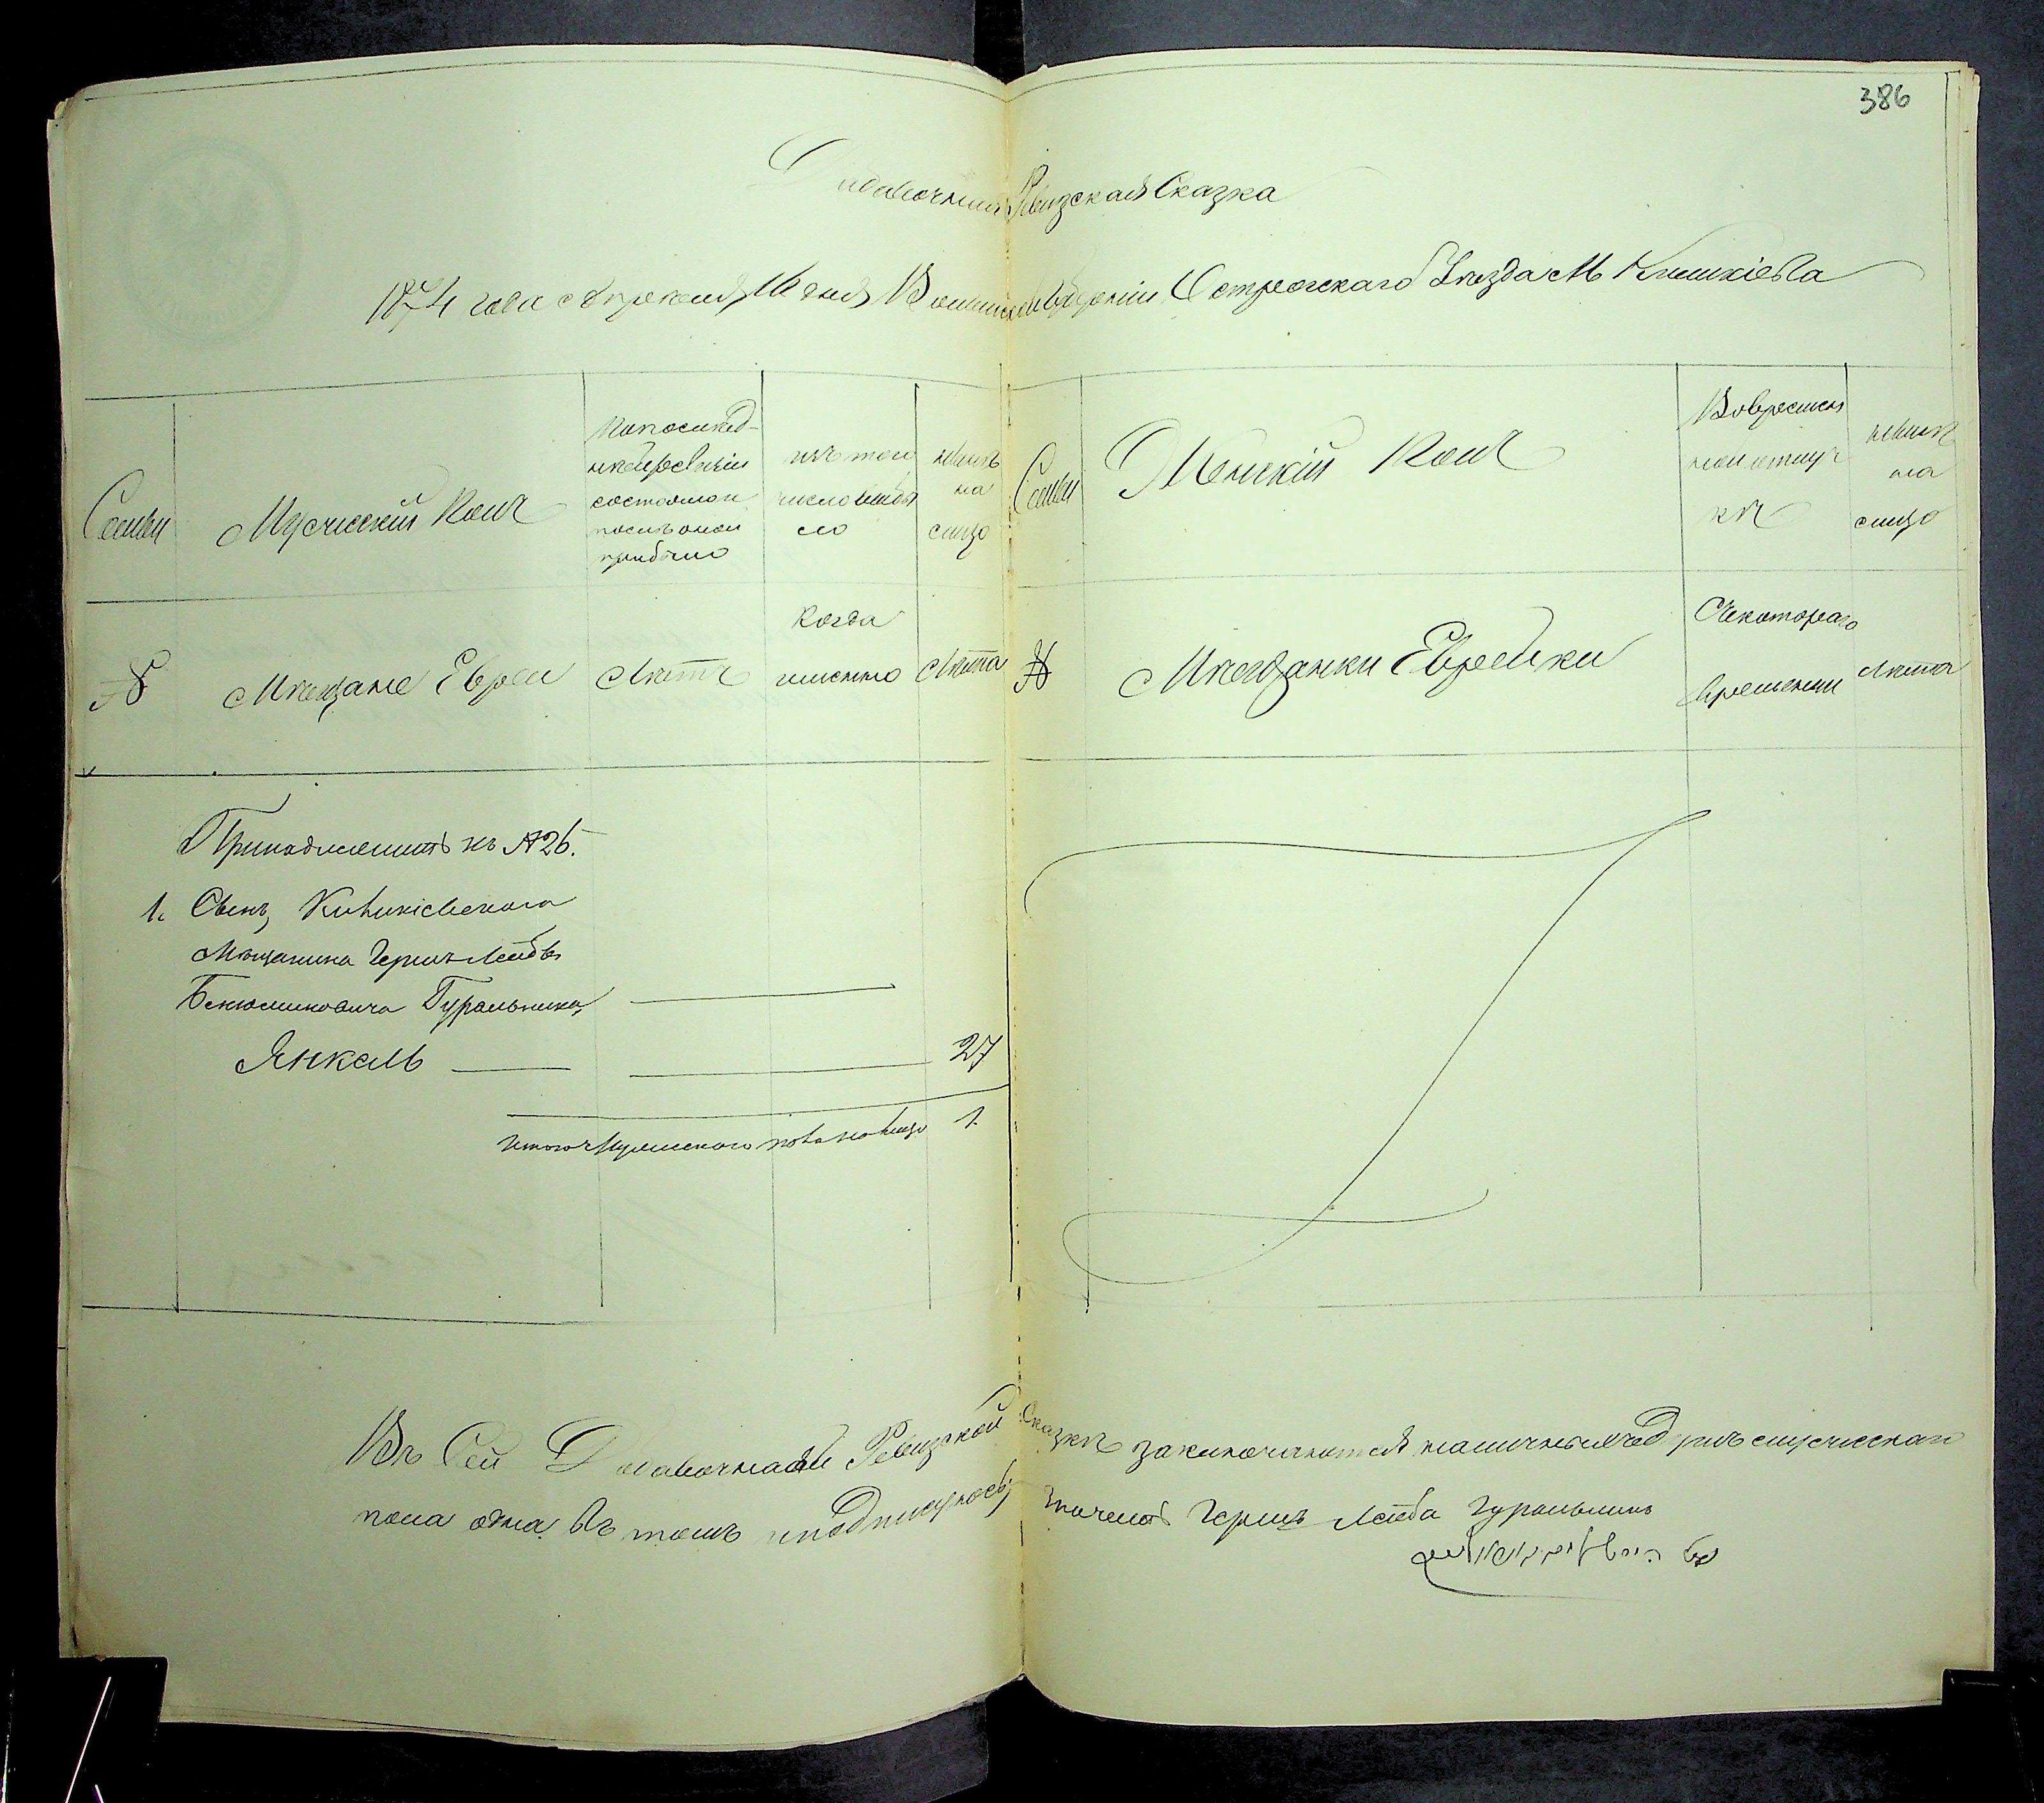 386
Добавочная Ревизская Сказка
1874 года Апреля 16 дня Волынской Губерніи Острогскаго Уѣзда М. Куликіева
Семьи
Мужескій Полъ
По послѣд-
ней ревизіи
состояло и
послѣ оной
прибыло
изъ того
числа выбы
ло
нынѣ
на
лицо
Семьи
Женскій Полъ
Во времен
ной отлуч
кѣ
нынѣ
на
лицо
№
Мѣщане Евреи
Лѣтъ
Когда
именно
Лѣта
№
Мѣщанки Еврейки
Съ котораго
времени
Лѣта
Принадлежитъ къ №26.
1. Сынъ,
Мѣщанина Гершъ Лейбы
Бенюминовича Гуральника,
Янкель 27
Итого Мужескаго пола на лицо 1.
Въ Сей Добавочной Ревизской Сказкѣ заключаются наличныхъ душъ мужескаго
пола одна въ томъ и подписуюсь Гершъ Лейба Гуральникъ